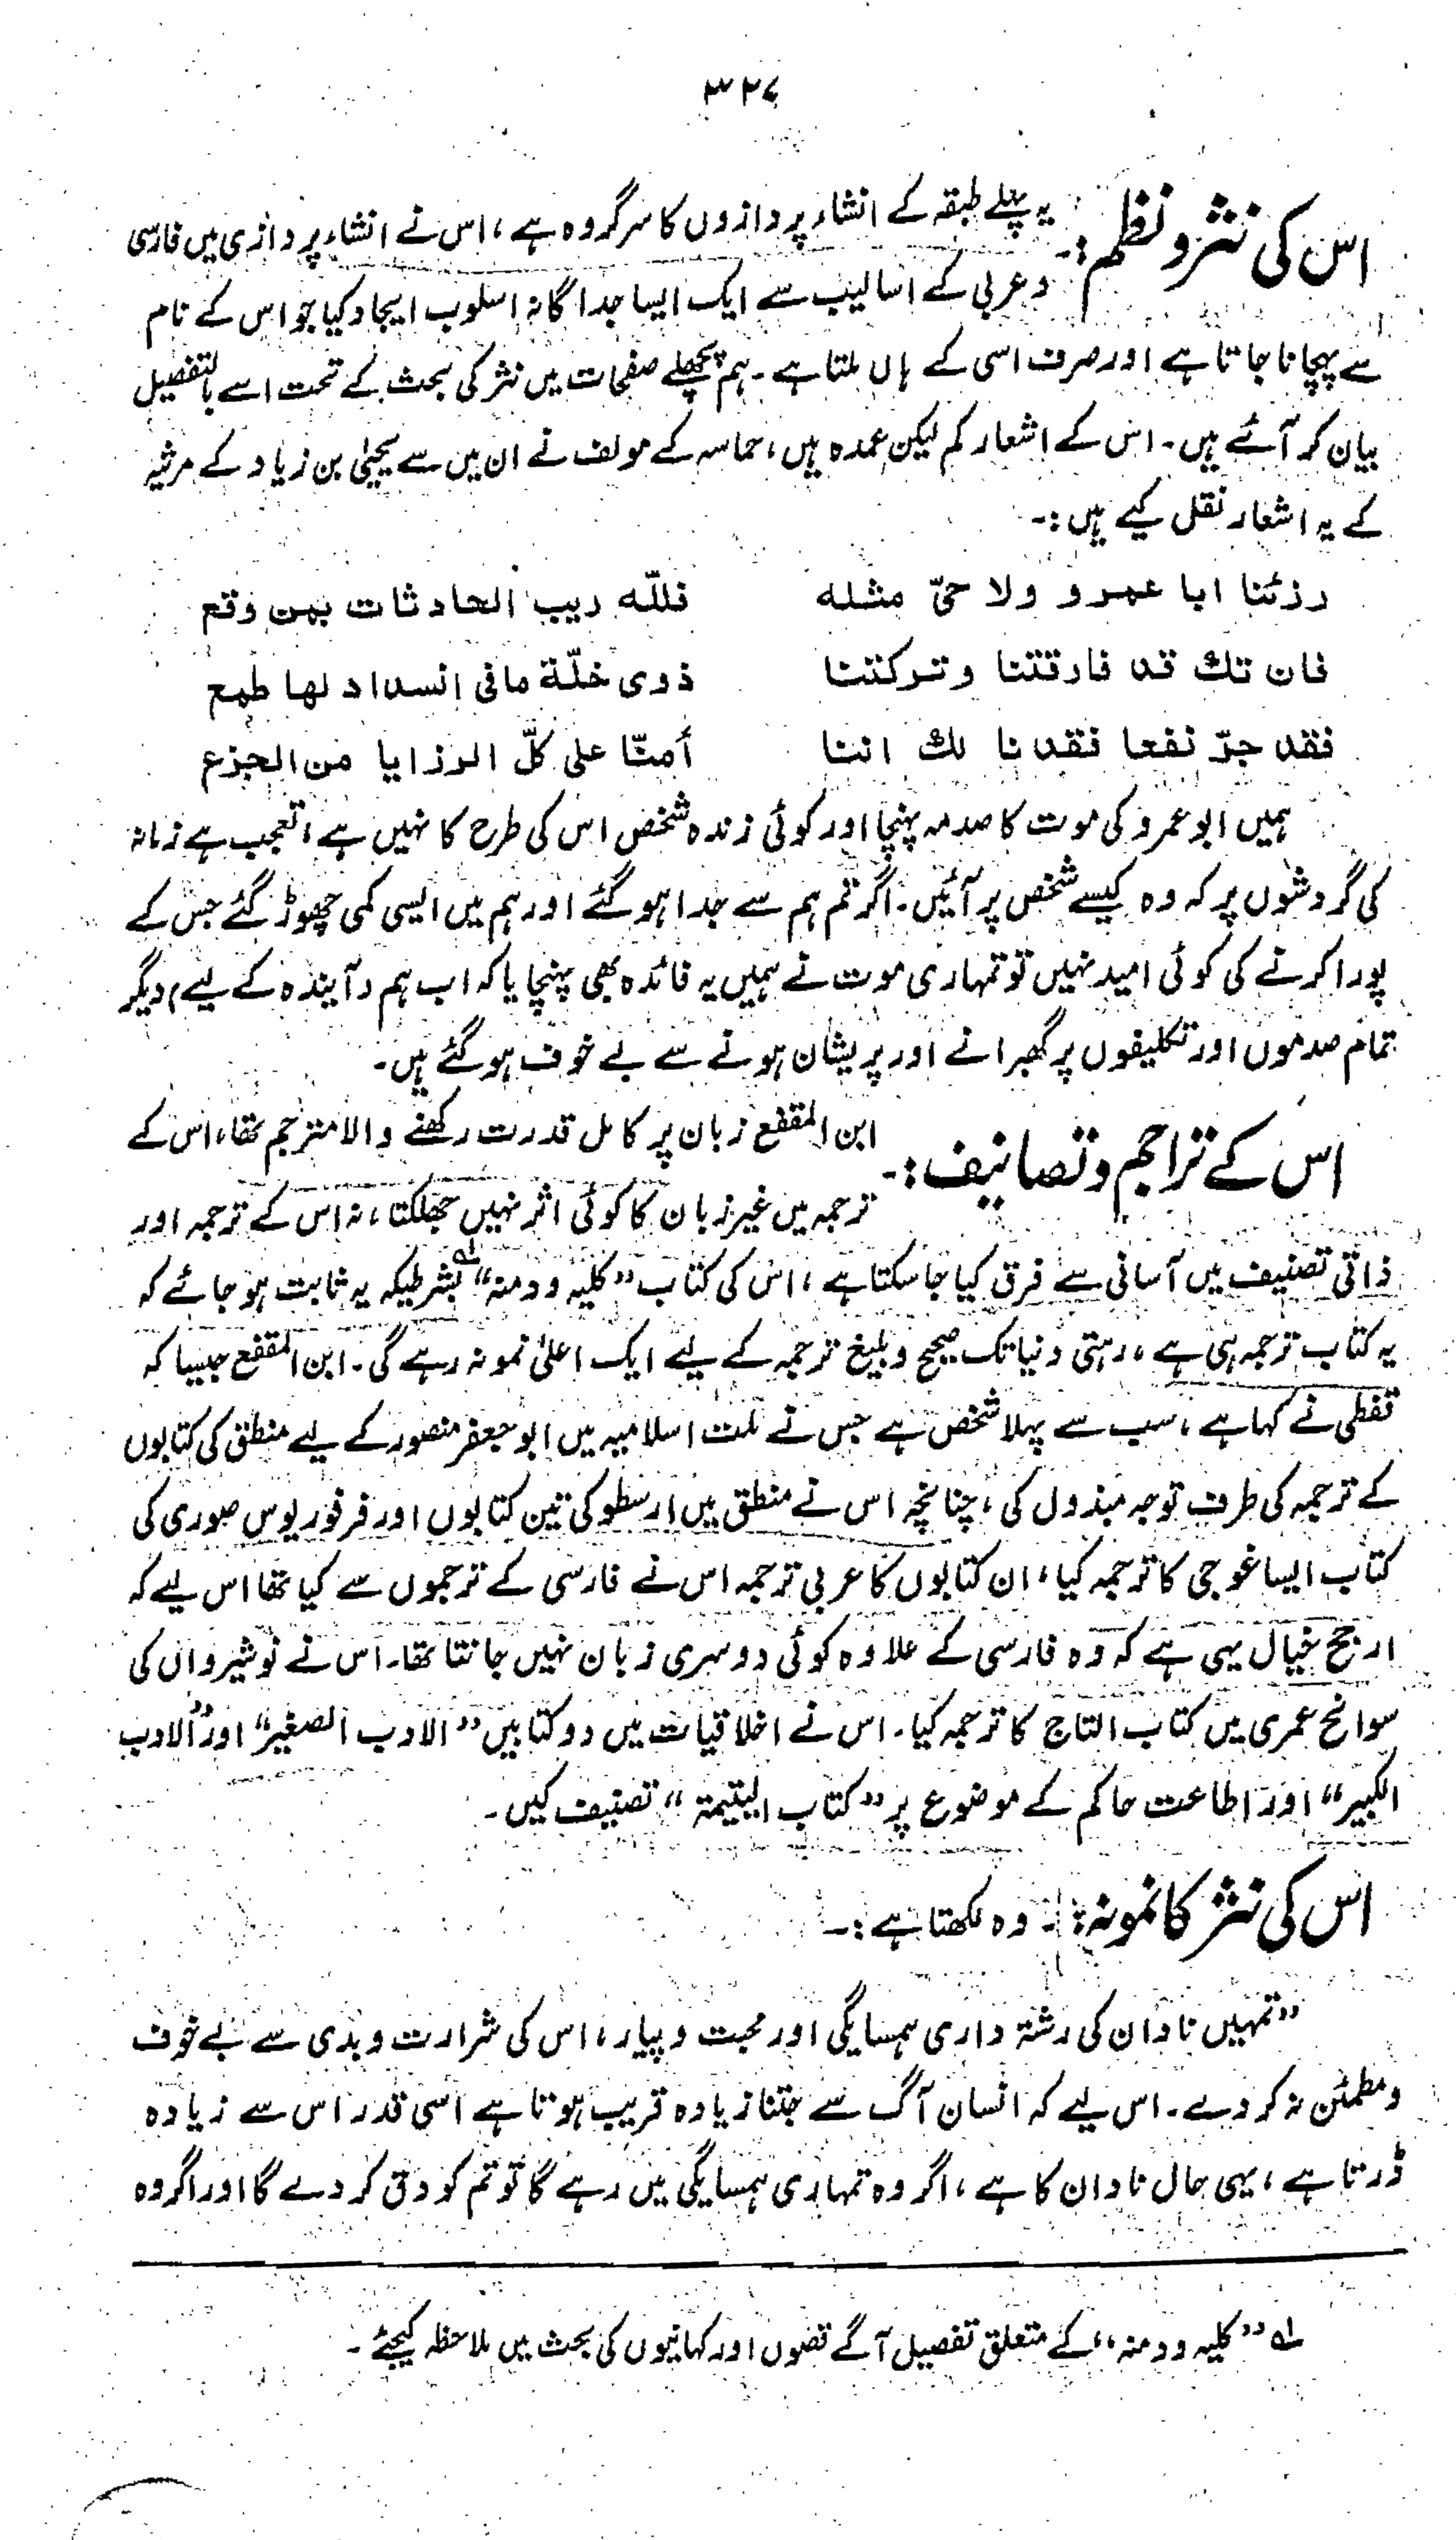 ۳۲۷
اس کی نثر و نظم :۔ یہ پہلے طبقہ کے انشاء پردازوں کا سرگروہ ہے، اس نے انشاء پردازی میں فارسی
و عربی کے اسالیب سے ایک ایسا جداگانہ اسلوب ایجاد کیا جو اس کے نام
سے پہچانا جاتا ہے اور صرف اسی کے ہاں ملتا ہے۔ ہم پچھلے صفحات میں نثر کی بحث کے تحت اسے بالتفصیل
بیان کر آئے ہیں۔ اس کے اشعار کم لیکن عمدہ ہیں، حماسہ کے مولف نے ان میں سے یحییٰ بن زیاد کے مرثیہ
کے یہ اشعار نقل کیے ہیں :۔
رزئنا ابا عمرو ولا حیّ مثله فللّه ریب الحادثات بمن وقع
فان تك قد فارقتنا وترکتنا ذوی خلّة مافی انسداد لها طمع
فقد جرّ نفعا فقدنا لك اننا أمنّا علی کلّ الرزایا من الجزع
ہمیں ابو عمرو کی موت کا صدمہ پہنچا اور کوئی زندہ شخص اس کی طرح کا نہیں ہے، تعجب ہے زمانہ
کی گردشوں پر کہ وہ کیسے شخص پر آئیں۔ اگر تم ہم سے جدا ہو گئے اور ہم میں ایسی کمی چھوڑ گئے جس کے
پورا کرنے کی کوئی امید نہیں تو تمہاری موت نے ہمیں یہ فائدہ بھی پہنچایا کہ اب ہم (آیندہ کے لیے) دیگر
تمام صدموں اور تکلیفوں پر گھبرانے اور پریشان ہونے سے بے خوف ہو گئے ہیں۔
اس کے تراجم و تصانیف :۔ ابن المقفع زبان پر کامل قدرت رکھنے والا مترجم تھا، اس کے
ترجمہ میں غیر زبان کا کوئی اثر نہیں جھلکتا، نہ اس کے ترجمہ اور
ذاتی تصنیف میں آسانی سے فرق کیا جا سکتا ہے، اس کی کتاب ”کلیہ و دمنہ“ لہ بشرطیکہ یہ ثابت ہو جائے کہ
یہ کتاب ترجمہ ہی ہے، رہتی دنیا تک صحیح و بلیغ ترجمہ کے لیے ایک اعلیٰ نمونہ رہے گی۔ ابن المقفع جیسا کہ
قفطی نے کہا ہے، سب سے پہلا شخص ہے جس نے ملت اسلامیہ میں ابو جعفر منصور کے لیے منطق کی کتابوں
کے ترجمہ کی طرف توجہ مبذول کی، چنانچہ اس نے منطق میں ارسطو کی تین کتابوں اور فرفوریوس صوری کی
کتاب ایساغوجی کا ترجمہ کیا، ان کتابوں کا عربی ترجمہ اس نے فارسی کے ترجموں سے کیا تھا اس لیے کہ
ارجح خیال یہی ہے کہ وہ فارسی کے علاوہ کوئی دوسری زبان نہیں جانتا تھا۔ اس نے نوشیرواں کی
سوانح عمری میں کتاب التاج کا ترجمہ کیا۔ اس نے اخلاقیات میں دو کتابیں ”الادب الصغیر“ اور ”الادب
الکبیر“ اور اطاعت حاکم کے موضوع پر ”کتاب الیتیمۃ“ تصنیف کیں۔
اس کی نثر کا نمونہ :۔ وہ لکھتا ہے :۔
”تمہیں نادان کی رشتہ داری ہمسایگی اور محبت و پیار، اس کی شرارت و بدی سے بے خوف
و مطمئن نہ کر دے۔ اس لیے کہ انسان آگ سے جتنا زیادہ قریب ہوتا ہے اسی قدر اس سے زیادہ
ڈرتا ہے، یہی حال نادان کا ہے، اگر وہ تمہاری ہمسایگی میں رہے گا تو تم کو دق کر دے گا اور اگر وہ
لہ ”کلیہ و دمنہ“ کے متعلق تفصیل آگے قصوں اور کہانیوں کی بحث میں ملاحظہ کیجئے۔